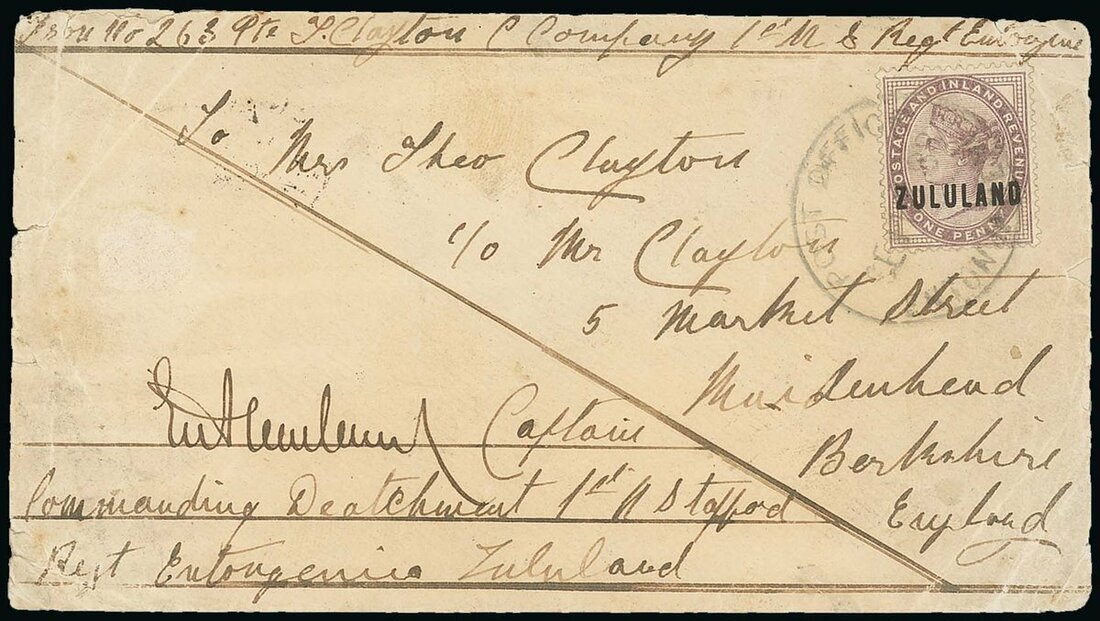 From No 263 Pte T. Clayton C Company 1st N S Regt
To
Mrs Theo Clayton
c/o Mr Clayton
5 Market Street
Maidenhead
Berkshire
England
POSTAGE AND INLAND REVENUE
ZULULAND
ONE PENNY
POST OFFIC
Captain
Commanding Deatchment 1st N Stafford
Regt Entongenia Zululand